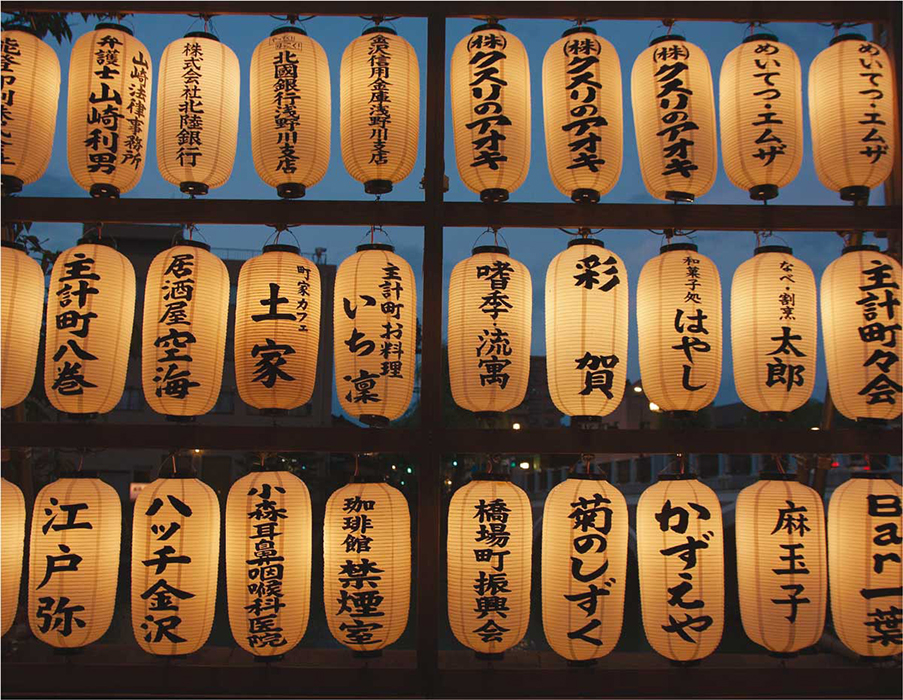 弁護士 山崎利男
山崎法律事務所
株式会社北陸銀行
北國銀行浅野川支店
金沢信用金庫浅野川支店
(株)クスリのアオキ
(株)クスリのアオキ
(株)クスリのアオキ
めいてつ・エムザ
めいてつ・エムザ
主計町八巻
居酒屋空海
町家カフェ
土家
主計町お料理
いち凛
嗜季・流寓
彩賀
和菓子処
はやし
なべ・割烹
太郎
主計町々会
江戸弥
ハッチ金沢
小森耳鼻咽喉科医院
珈琲館
禁煙室
橋場町振興会
菊のしずく
かずえや
麻玉子
Bar一葉